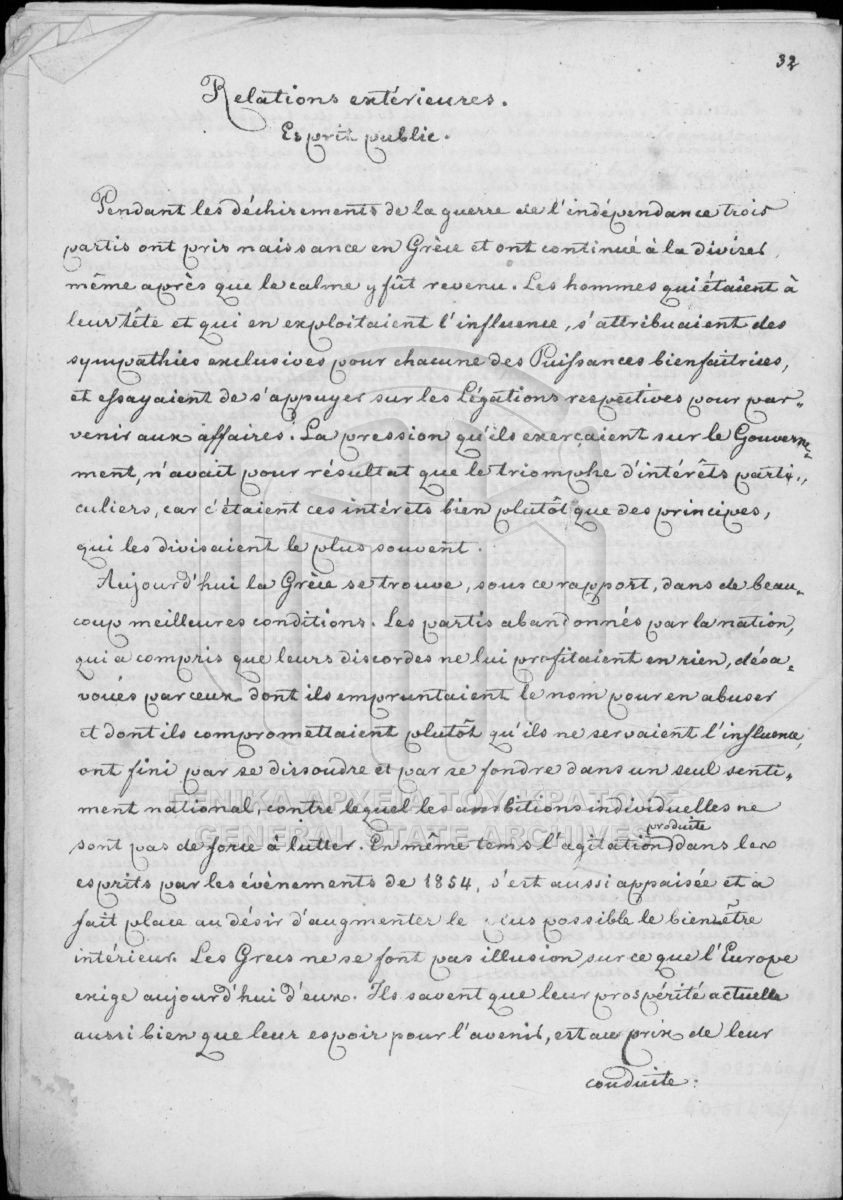 32
Relations extérieures.
Esprit public.
Pendant les déchirements de la guerre de l'indépendance trois
partis ont pris naissance en Grèce et ont continué à la diviser,
même après que le calme y fût revenu. Les hommes qui étaient à
leur tête et qui en exploitaient l'influence, s'attribuaient des
sympathies exclusives pour chacune des Puissances bienfaitrices,
et essayaient de s'appuyer sur les Légations respectives pour par-
venir aux affaires. La pression qu'ils exerçaient sur le Gouverne-
ment, n'avait pour résultat que le triomphe d'intérêts parti-
culiers, car c'étaient ces intérets bien plutôt que des principes,
qui les divisaient le plus souvent.
Aujourd'hui la Grèce se trouve, sous ce rapport, dans de beau-
coup meilleures conditions. Les partis abandonnés par la nation,
qui a compris que leurs discordes ne lui profitaient en rien, désa-
voués par ceux dont ils empruntaient le nom pour en abuser
et dont ils compromettaient plutôt qu'ils ne servaient l'influence,
ont fini par se dissoudre et par se fondre dans un seul senti-
ment national, contre lequel les ambitions individuelles ne
ΓΕΝΙΚΑ ΑΡΧΕΙΑ ΤΟΥ ΚΡΑΤΟΥΣ
GENERAL STATE ARCHIVES
produite
sont pas de force à lutter. En même tems l'agitation dans les
esprits par les évènements de 1854, s'est aussi appaisée et a
fait place au désir d'augmenter le plus possible le bien-être
intérieur. Les Grecs ne se font pas illusion sur ce que l'Europe
exige aujourd'hui d'eux. Ils savent que leur prospérité actuelle
aussi bien que leur espoir pour l'avenir, est au prix de leur
conduite.